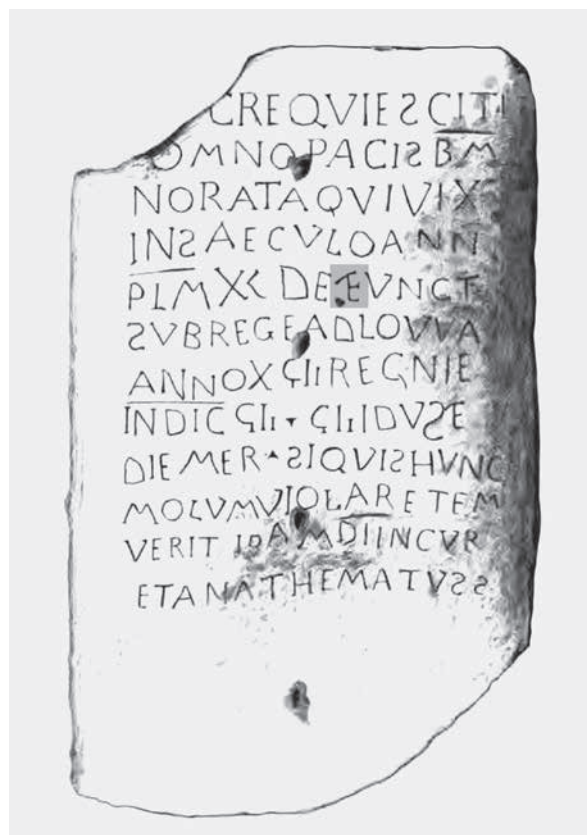 CREQVIESCITI
OMNOPACISBM
NORATAQVIVIX
INSAECVLOANN
PLMXL DEFVNCT
SVBREGEADLOVVA
ANNOXϚIIREGNIE
INDICϚII ϚIIIDVSE
DIEMER SIQVISHVNC
MOLVMVIOLARETEM
VERIT IRAMDIINCVR
ETANATHEMATVSS